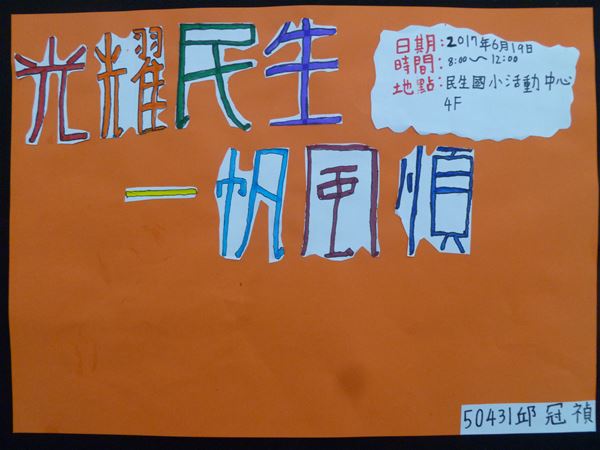 光耀民生
一帆風順
日期:2017年6月19日
時間:8:00~12:00
地點:民生國小活動中心
4F
50431邱冠禎